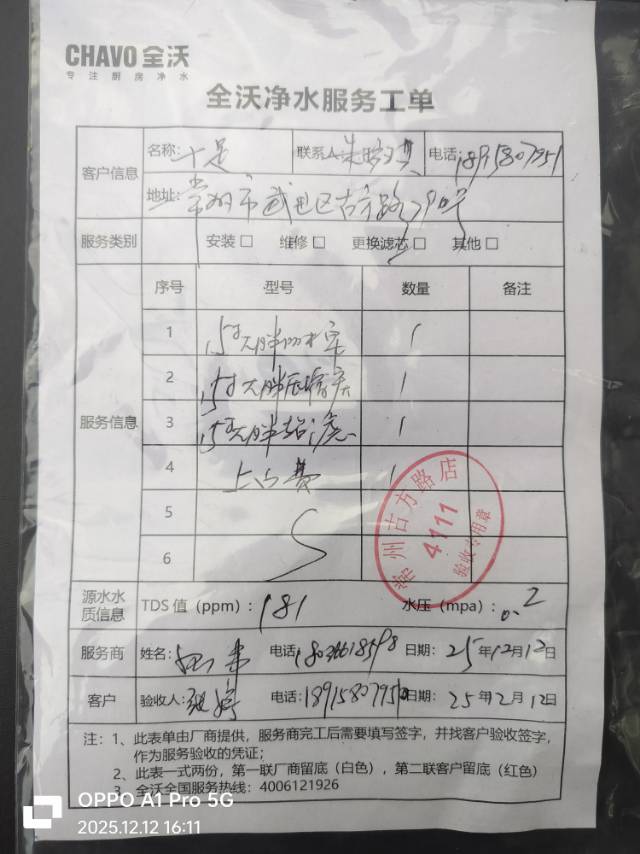 CHAVO 全沃
专注厨房净水
全沃净水服务工单
客户信息
名称: 十足 联系人 电话:
地址: 常州市武进区古方路79号
服务类别 安装□ 维修□ 更换滤芯□ 其他□
服务信息
序号 型号 数量 备注
1 1
2 1
3 1
4 上门费 1
5
6
常州古方路店
4111
验收专用章
源水水质信息 TDS值(ppm): 181 水压(mpa): 0.2
服务商 姓名: 电话: 日期: 25年12月12日
客户 验收人: 电话: 日期: 25年2月12日
注: 1、此表单由厂商提供,服务商完工后需要填写签字,并找客户验收签字,
作为服务验收的凭证;
2、此表一式两份,第一联厂商留底(白色),第二联客户留底(红色)
3、全沃全国服务热线: 4006121926
OPPO A1 Pro 5G
2025.12.12 16:11